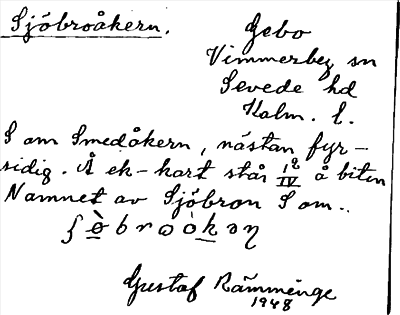 Sjöbroåkern. Gebo
Vimmerby sn
Sevede hd
Kalm. l.
S om Smedåkern, nästan fyr-
sidig. Å ek-kart står å biten
Namnet av Sjöbron S om..
Gustaf Rämmenge
1948